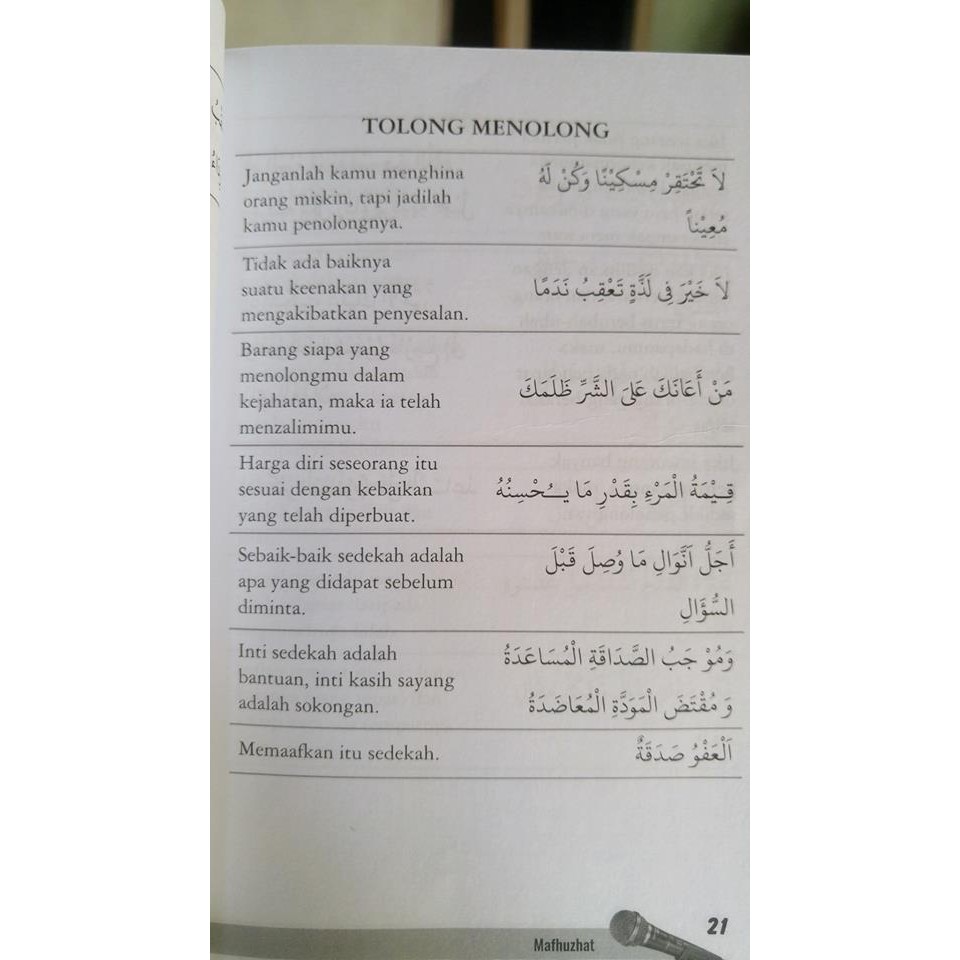 TOLONG MENOLONG
Janganlah kamu menghina
orang miskin, tapi jadilah
kamu penolongnya.
لاَ تَحْتَقِرْ مِسْكِيْنًا وَكُنْ لَهُ
مُعِيْناً
Tidak ada baiknya
suatu keenakan yang
mengakibatkan penyesalan.
لاَ خَيْرَ فِى لَذَّةٍ تَعْقِبُ نَدَمًا
Barang siapa yang
menolongmu dalam
kejahatan, maka ia telah
menzalimimu.
مَنْ أَعَانَكَ عَلىَ الشَّرِّ ظَلَمَكَ
Harga diri seseorang itu
sesuai dengan kebaikan
yang telah diperbuat.
قِـيْمَةُ الْمَرْءِ بِقَدْرِ مَا يـُـحْسِنُهُ
Sebaik-baik sedekah adalah
apa yang didapat sebelum
diminta.
أَجَلُّ اَنَّوَالِ مَا وُصِلَ قَبْلَ
السُّؤَالِ
Inti sedekah adalah
bantuan, inti kasih sayang
adalah sokongan.
وَمُوْ جَبُ الصَّدَاقَةِ الْمُسَاعَدَةُ
وَ مُقْتَضَ الْمَوَدَّةِ الْمُعَاضَدَةُ
Memaafkan itu sedekah.
اَلْعَفْوُ صَدَقَةٌ
Mafhuzhat
21